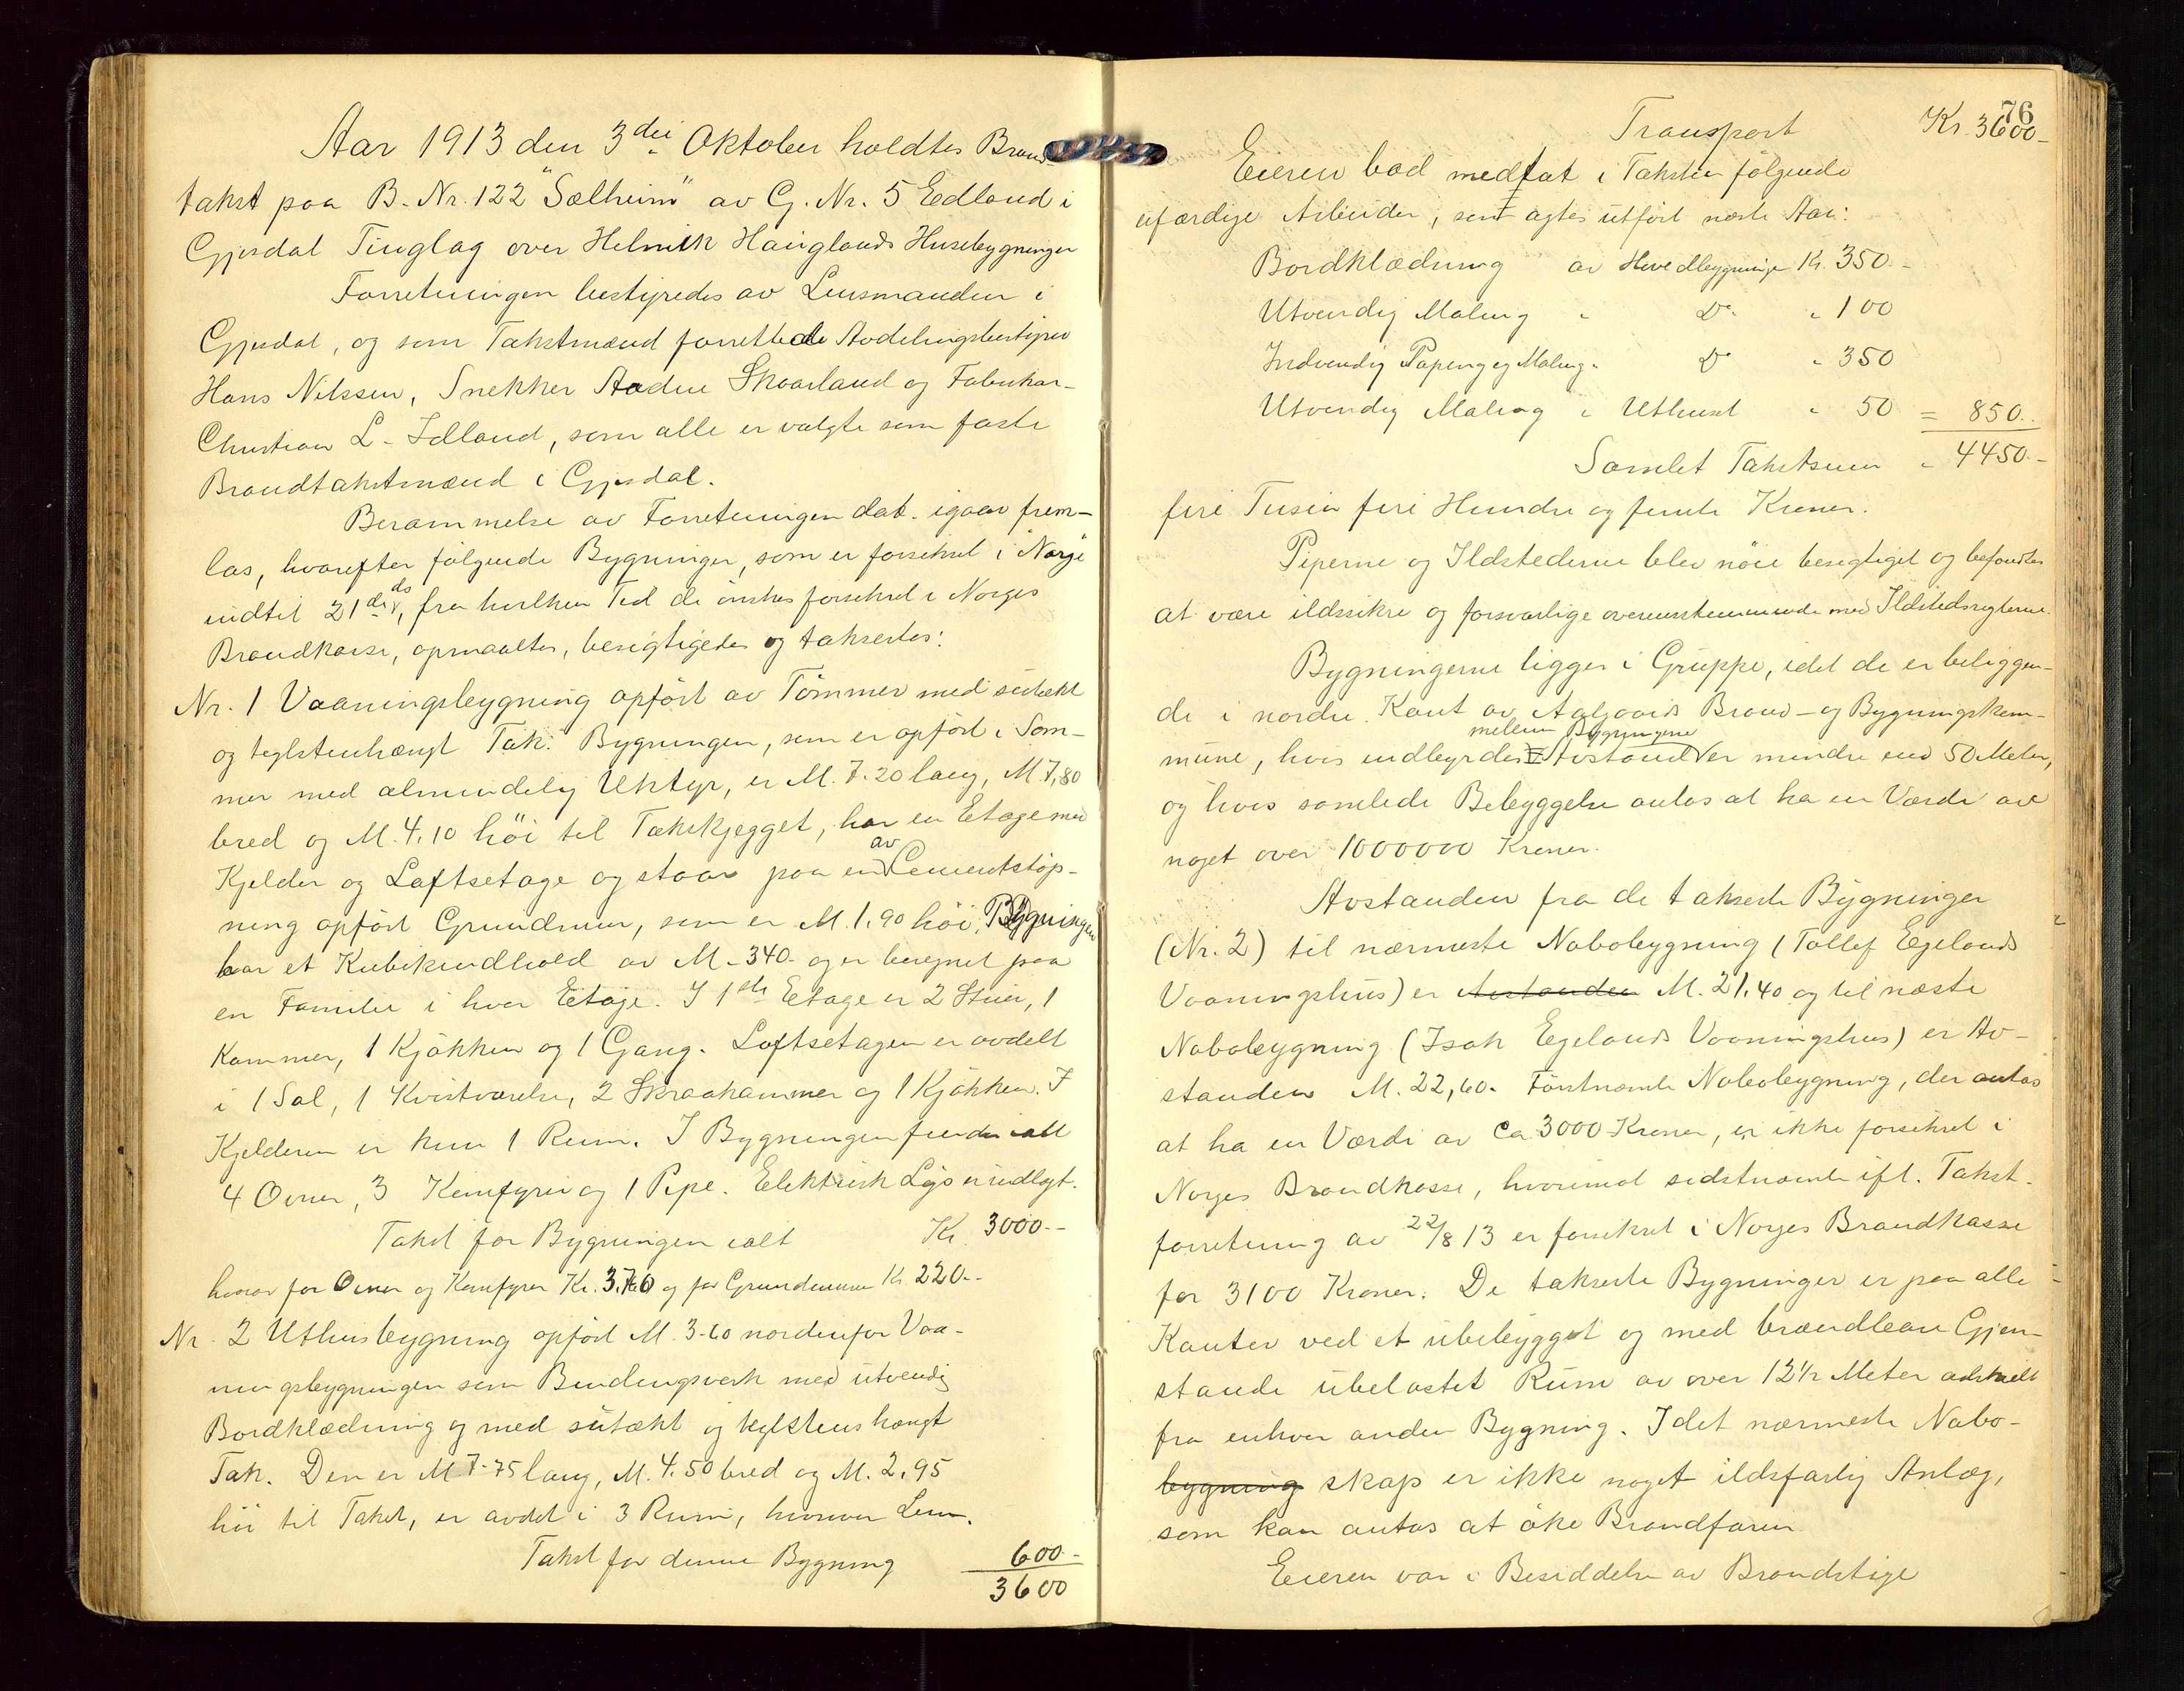 Aar 1913 den 3die Oktober holdtes Brand-
takst paa B. Nr. 122 "Sælheim" av G. Nr. 5 Edland i
Gjesdal Tinglag over Helmik Hauglands Husebygninger
Forretningen bestyredes av Lensmanden i
Gjesdal, og som Takstmænd forrettede Avdelingsbestyrer
Hans Nilssen, Snekker Aadne Skaarland og Fabrikar-
Christian L. Idland, som alle er valgte som faste
Brandtakstmænd i Gjesdal.
Berammelse av Forretningen dat. igaar frem-
las, hvorefter følgende Bygninger, som er forsikret i "Norge"
indtil 21de ds, fra hvilken Tid de ønskes forsikret i Norges
Brandkasse, opmaaltes, besigtigedes og taksertes:
Nr. 1 Vaaningsbygning opført av Tømmer med sutækt
og teglstenhængt Tak. Bygningen, som er opført i Som-
mer med almindelig Utstyr, er M. 7.20 lang, M. 7,80
bred og M. 4,10 høi til Takskjegget, har en Etage med
Kjelder og Loftsetage og staar paa en av Cementstøp-
ning opført Grundmur, som er M. 1,90 høi, Bygningen
har et Kubikindhold av M. 340. og er beregnet paa
en Familie i hver Etage. I 1ste Etage er 2 Stuer, 1
Kammer, 1 Kjøkken og 1 Gang. Loftsetagen er avdelt
i 1 Sal, 1 Kvistværelse, 2 Skraakammer og 1 Kjøkken. I
Kjelderen er kun 1 Rum. I Bygningen findes ialt
4 Ovner, 3 Komfyrer og 1 Pipe. Elektrisk Lys er indlagt.
Takst for Bygningen ialt Kr. 3000.-
hvorav for Ovner og Komfyrer Kr. 370 og for Grundmuren Kr. 220.-
Nr. 2 Uthusbygning opført M. 3.60 nordenfor Vaa-
ningsbygningen som Bindingsverk med utvendig
Bordklædning og med sutækt og teglstenshængt
Tak. Den er M 7.75 lang, M. 4.50 bred og M. 2,95
høi til Taket, er avdelt i 3 Rum, hvorav
Takst for denne Bygning 600.-
3600
76
Transport Kr. 3600-
Eieren bad medtat i Taksten følgende
ufærdige Arbeider, som agtes utført næste Aar:
Bordklædning av Hovedbygningen Kr. 350.-
Utvendig Maling " Do " 100
Indvendig Papering og Maling " Do " 350
Utvendig Maling " Uthuset " 50 = 850.
Samlet Takstsum " 4450.-
fire Tusen fire Hundre og femti Kroner.
Piperne og Ildstederne blev nøie besigtiget og befandtes
at være ildssikre og forsvarlige overensstemmende med Ildstedsreglerne.
Bygningerne ligger i Gruppe, idet de er beliggen-
de i nordre Kant av Aalgaards Brand- og Bygningskom-
mune, hvis indbyrdes Avstand mellem Bygningerne er mindre end 50 Meter,
og hvis samlede Bebyggelse antas at ha en Værdi av
noget over 1000000 Kroner.
Avstanden fra de takserte Bygninger
(Nr. 2) til nærmeste Nabobygning (Tollef Egelands
Vaaningshus) er Avstanden M. 21,40 og til næste
Nabobygning (Isak Egelands Vaaningshus) er Av-
standen M. 22,60. Førstnævnte Nabobygning, der antas
at ha en Værdi av ca 3000 Kroner, er ikke forsikret i
Norges Brandkasse, hvorimot sidstnævnte ifl. Takst-
forretning av 22/8 13 er forsikret i Norges Brandkasse
for 3100 Kroner. De takserte Bygninger er paa alle
Kanter ved et ubebygget og med brændbare Gjen-
stande ubelastet Rum av over 12½ Meter adskilt
fra enhver anden Bygning. I det nærmeste Nabo-
bygning skap er ikke noget ildsfarlig Anlæg,
som kan antas at øke Brandfaren
Eieren var i Besiddelse av Brandstige